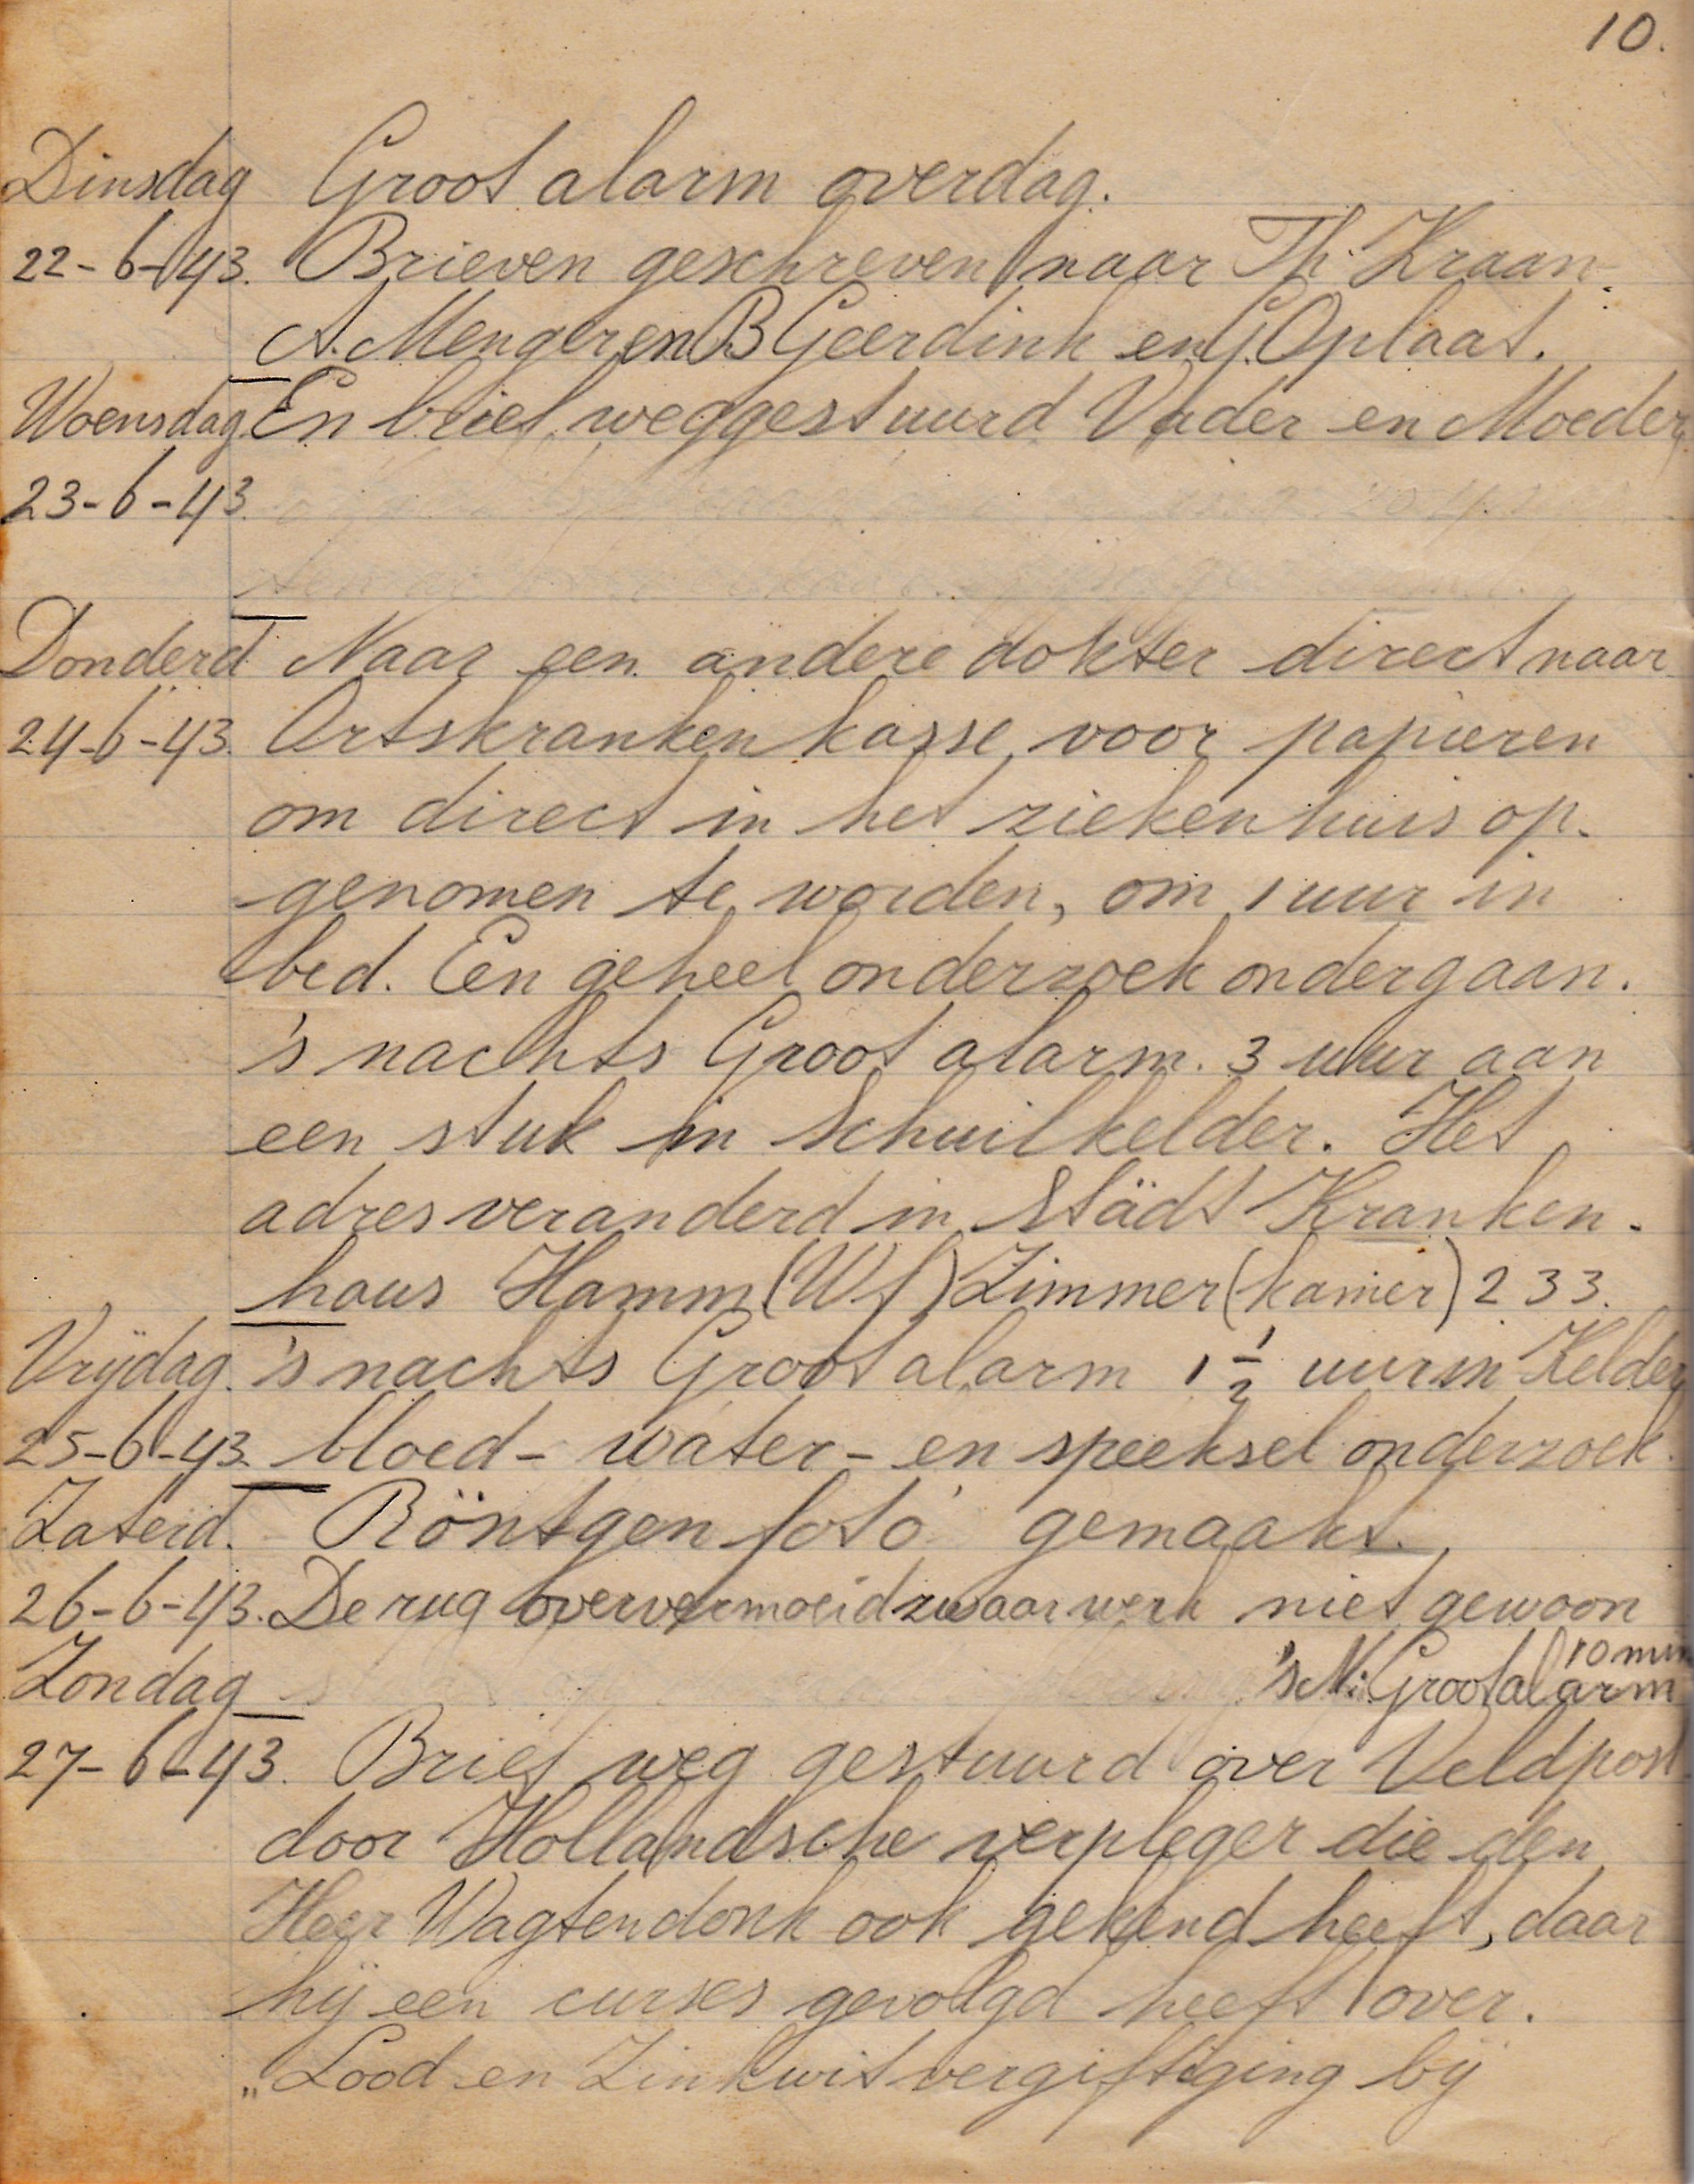 10.
Dinsdag Groot alarm overdag.
22-6-43. Brieven geschreven naar Th. Kraan.
A. Mengeren B Geerdink en G. Oplaat.
Woensdag En brief weggestuurd Vader en Moeder
23-6-43.
Donderd Naar een andere dokter direct naar
24-6-43. Ortskrankenkasse voor papieren
om direct in het ziekenhuis op-
genomen te worden, om 1 uur in
bed. Een geheel onderzoek ondergaan.
's nachts Groot alarm. 3 uur aan
een stuk in Schuilkelder. Het
adres veranderd in Städt Kranken-
haus Hamm (Wf) Zimmer (kamer) 233.
Vrijdag. 's nachts Groot alarm 1 1/2 uur in Kelder
25-6-43. bloed- water- en speeksel onderzoek.
Zaterd. Röntgen foto gemaakt.
26-6-43. De rug oververmoeid zwaar werk niet gewoon
10 min
Zondag 's N. Groot alarm
27-6-43. Brief weg gestuurd over Veldpost
door Hollandsche verpleger die den
Heer Wagtendonk ook gekend heeft, daar
hij een curses gevolgd heeft over.
„Lood en Zinkwit vergiftiging bij